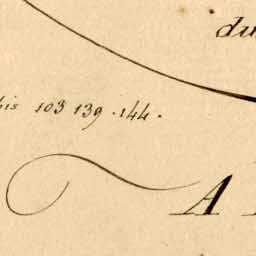 du
his 103 139 . 144 .
A